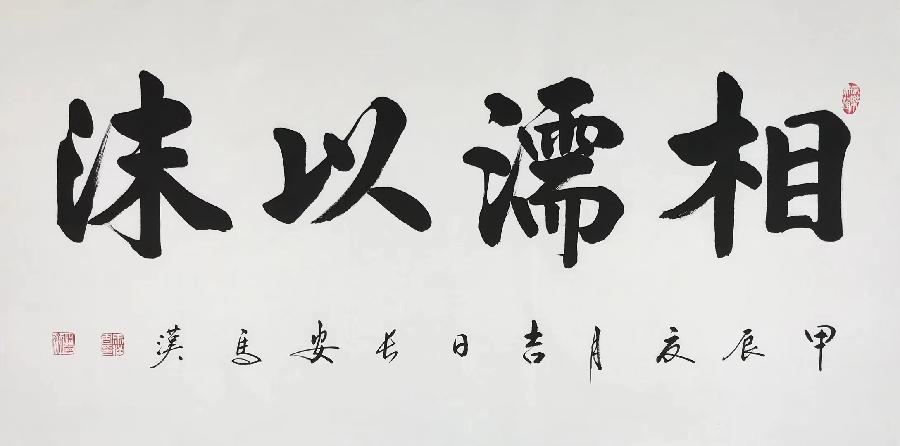 相濡以沫
甲辰夏月吉日长安马汉